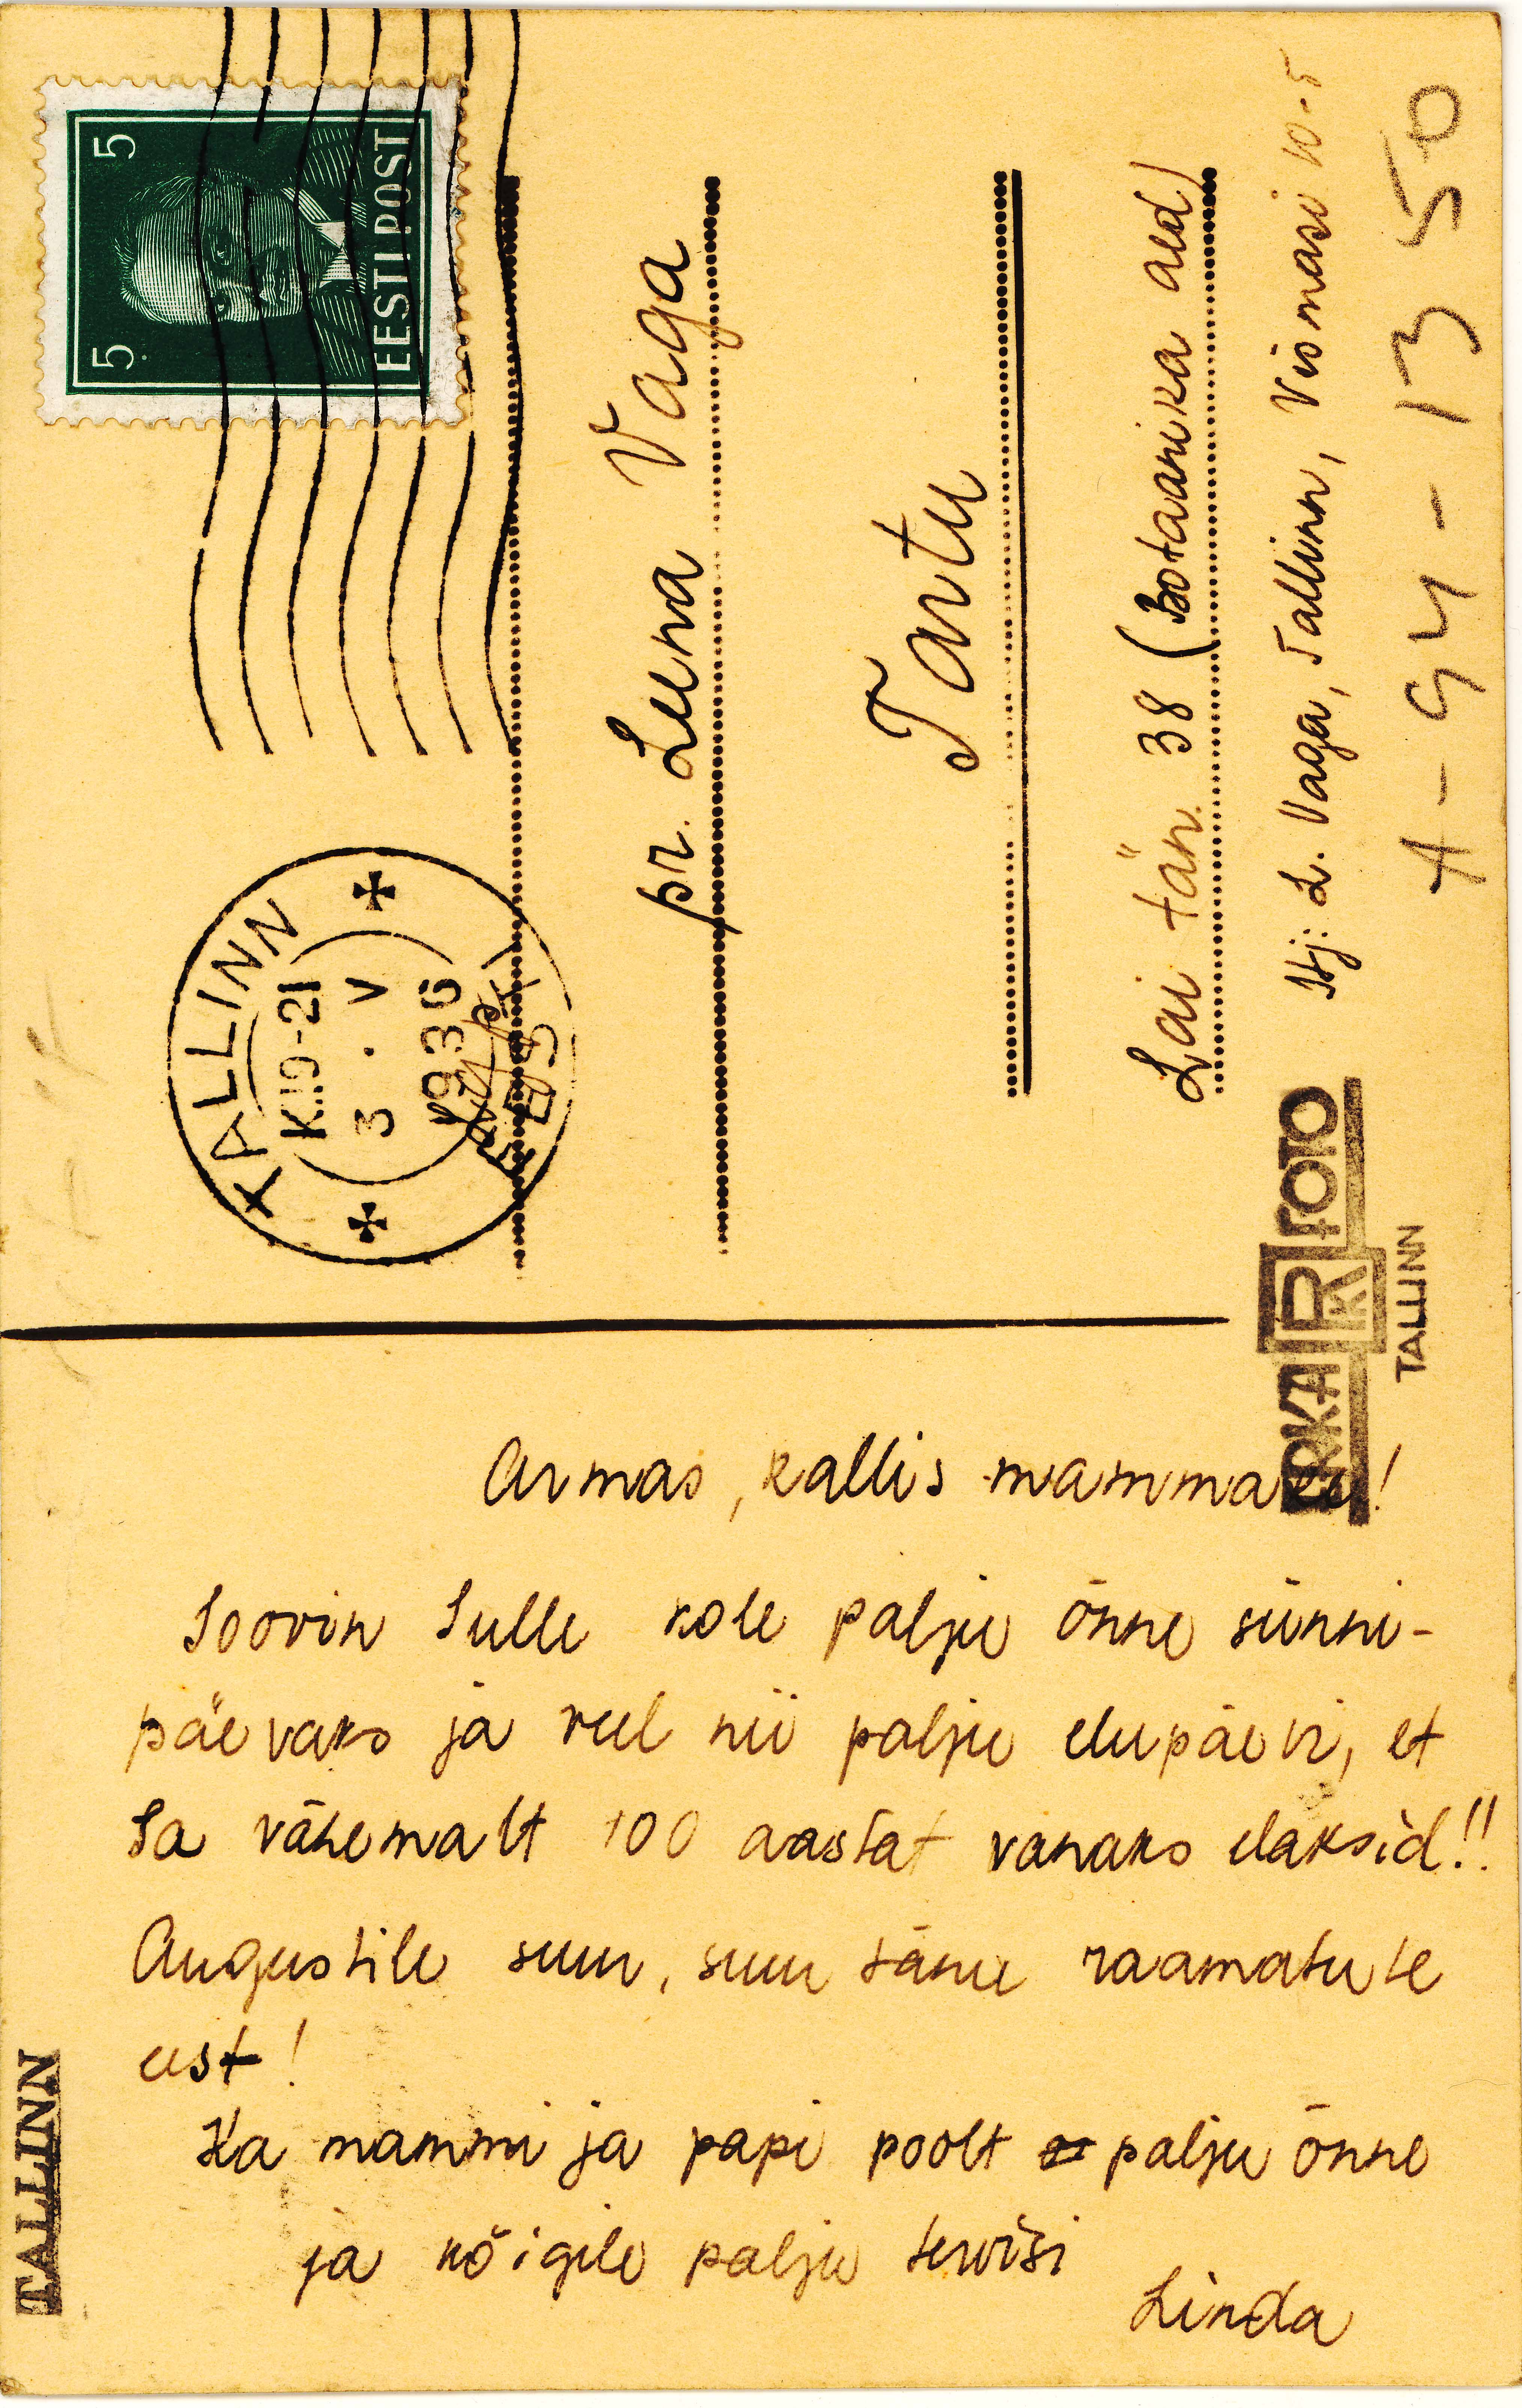 5 5
EESTI POST
TALLINN
K.19-21
3 . V
1936
EESTI
pr. Leena Vaga
Tartu
Lai tän. 38 (Botaanika aed)
Stj: L. Vaga, Tallinn, Vismari 10-5
A-94-1350
TALLINN
ERKA RK FOTO
TALLINN
Armas, kallis mammake!
Soovin Sulle kole palju õnne sünni-
päevaks ja veel nii palju elupäevi, et
Sa vähemalt 100 aastat vanaks elaksid!!
Augustile suur, suur tänu raamatute
eest!
Ka mammi ja papi poolt palju õnne
ja kõigile palju tervisi
Linda